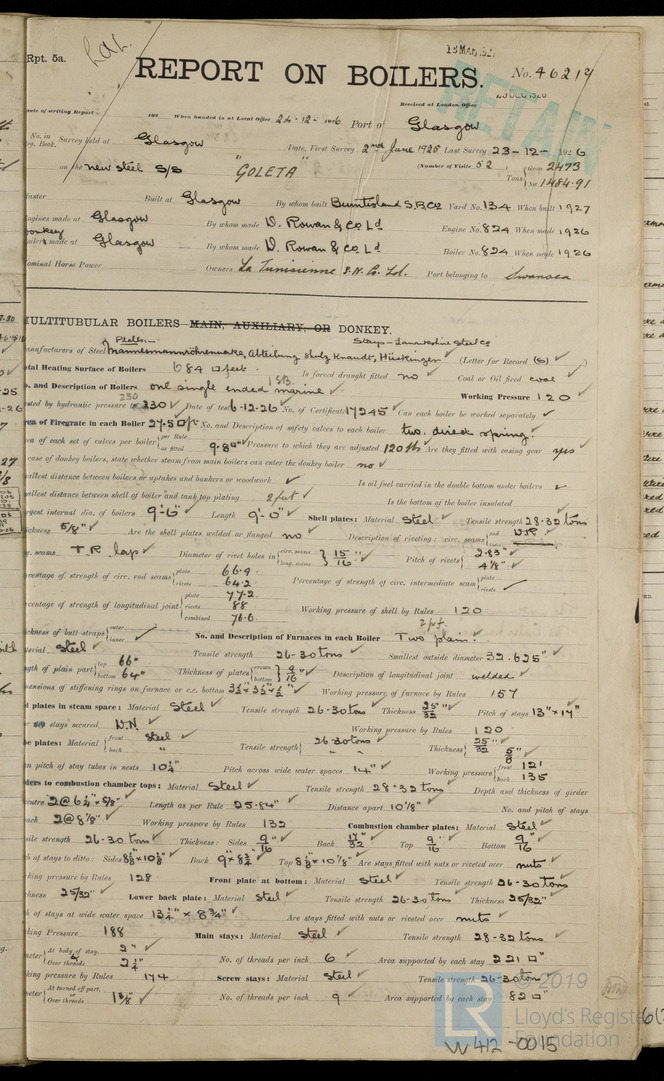 Rpt. 5a.
REPORT ON BOILERS.
No. 46214
Received at London Office
Date of writing Report 192 When handed in at Local Office 24-12-1926 Port of Glasgow
No. in Survey held at Glasgow Date, First Survey 2nd June 1925 Last Survey 23-12-1926
on the new steel S/S "GOLETA" (Number of Visits 52) Gross 2473
Tons Net 1484.91
Built at Glasgow By whom built Burntisland S.B. Co Yard No. 134 When built 1927
Engines made at Glasgow By whom made D. Rowan & Co Ld Engine No. 824 When made 1926
Boilers made at Glasgow By whom made D. Rowan & Co Ld Boiler No. 824 When made 1926
Nominal Horse Power Owners La Tunisienne S.N. Co. Ld. Port belonging to Swansea
MULTITUBULAR BOILERS MAIN, AUXILIARY, OR DONKEY.
Plates:- Stays - Lanarkshire Steel Co
Manufacturers of Steel Mannesmannröhrenwerke, Abteilung Schulz Knaudt, Hückingen (Letter for Record (S))
Total Heating Surface of Boilers 684 □ feet Is forced draught fitted no Coal or Oil fired coal
No. and Description of Boilers one single ended marine 1 SB. Working Pressure 120
Tested by hydraulic pressure to 230 Date of test 6-12-26 No. of Certificate 17245 Can each boiler be worked separately
Area of Firegrate in each Boiler 27.50 ft No. and Description of safety valves to each boiler two. direct spring.
Area of each set of valves per boiler per Rule as fitted 9.80" Pressure to which they are adjusted 120 lb Are they fitted with easing gear yes
In case of donkey boilers, state whether steam from main boilers can enter the donkey boiler no
Smallest distance between boilers or uptakes and bunkers or woodwork Is oil fuel carried in the double bottom under boilers
Smallest distance between shell of boiler and tank top plating 2 feet Is the bottom of the boiler insulated
Largest internal dia. of boilers 9'-6" Length 9'-0" Shell plates: Material Steel Tensile strength 28-32 tons
Thickness 5/8" Are the shell plates welded or flanged no Description of riveting: circ. seams end D.R.
long. seams T.R. lap Diameter of rivet holes in circ. seams long. seams 15/16 Pitch of rivets 2.83" 4 1/8"
Percentage of strength of circ. end seams plate 66.9 rivets 64.2 Percentage of strength of circ. intermediate seam plate rivets
Percentage of strength of longitudinal joint plate 77.2 rivets 88 combined 76.6 Working pressure of shell by Rules 120
Thickness of butt straps outer inner No. and Description of Furnaces in each Boiler Two plain.
Material Steel Tensile strength 26-30 tons Smallest outside diameter 32.625"
Length of plain part top 66" bottom 64" Thickness of plates crown bottom 9/16 Description of longitudinal joint welded
Dimensions of stiffening rings on furnace or c.c. bottom Working pressure of furnace by Rules 157
End plates in steam space: Material Steel Tensile strength 26-30 tons Thickness 25/32" Pitch of stays 13" x 14"
How are stays secured D.N. Working pressure by Rules 120
Tube plates: Material front steel back " Tensile strength 26-30 tons Thickness 25/32" 5/8"
Mean pitch of stay tubes in nests 10 1/2" Pitch across wide water spaces 14" Working pressure front 121 back 135
Girders to combustion chamber tops: Material Steel Tensile strength 28-32 tons Depth and thickness of girder
at centre 2@6 1/4" x 5/8" Length as per Rule 25.84" Distance apart 10 1/8" No. and pitch of stays
in each 2@8 1/8" Working pressure by Rules 132 Combustion chamber plates: Material Steel
Tensile strength 26-30 tons Thickness: Sides 9/16" Back 17/32 Top 9/16" Bottom 9/16
Pitch of stays to ditto: Sides 8 1/2" x 10 1/8" Back 9" x 8 3/4" Top 8 1/2" x 10 1/8" Are stays fitted with nuts or riveted over nuts
Working pressure by Rules 128 Front plate at bottom: Material Steel Tensile strength 26-30 tons
Thickness 25/32" Lower back plate: Material Steel Tensile strength 26-30 tons Thickness 25/32"
Pitch of stays at wide water space 13 1/4" x 8 3/4" Are stays fitted with nuts or riveted over nuts
Working Pressure 188 Main stays: Material Steel Tensile strength 28-32 tons
Diameter At body of stay, 2" Over threads 2 1/4" No. of threads per inch 6 Area supported by each stay 221 □"
Working pressure by Rules 174 Screw stays: Material Steel Tensile strength 26-30 tons
Diameter At turned off part, Over threads 1 3/8" No. of threads per inch 9 Area supported by each stay 82 □"
© 2019
Lloyd's Register
Foundation
W412-0015